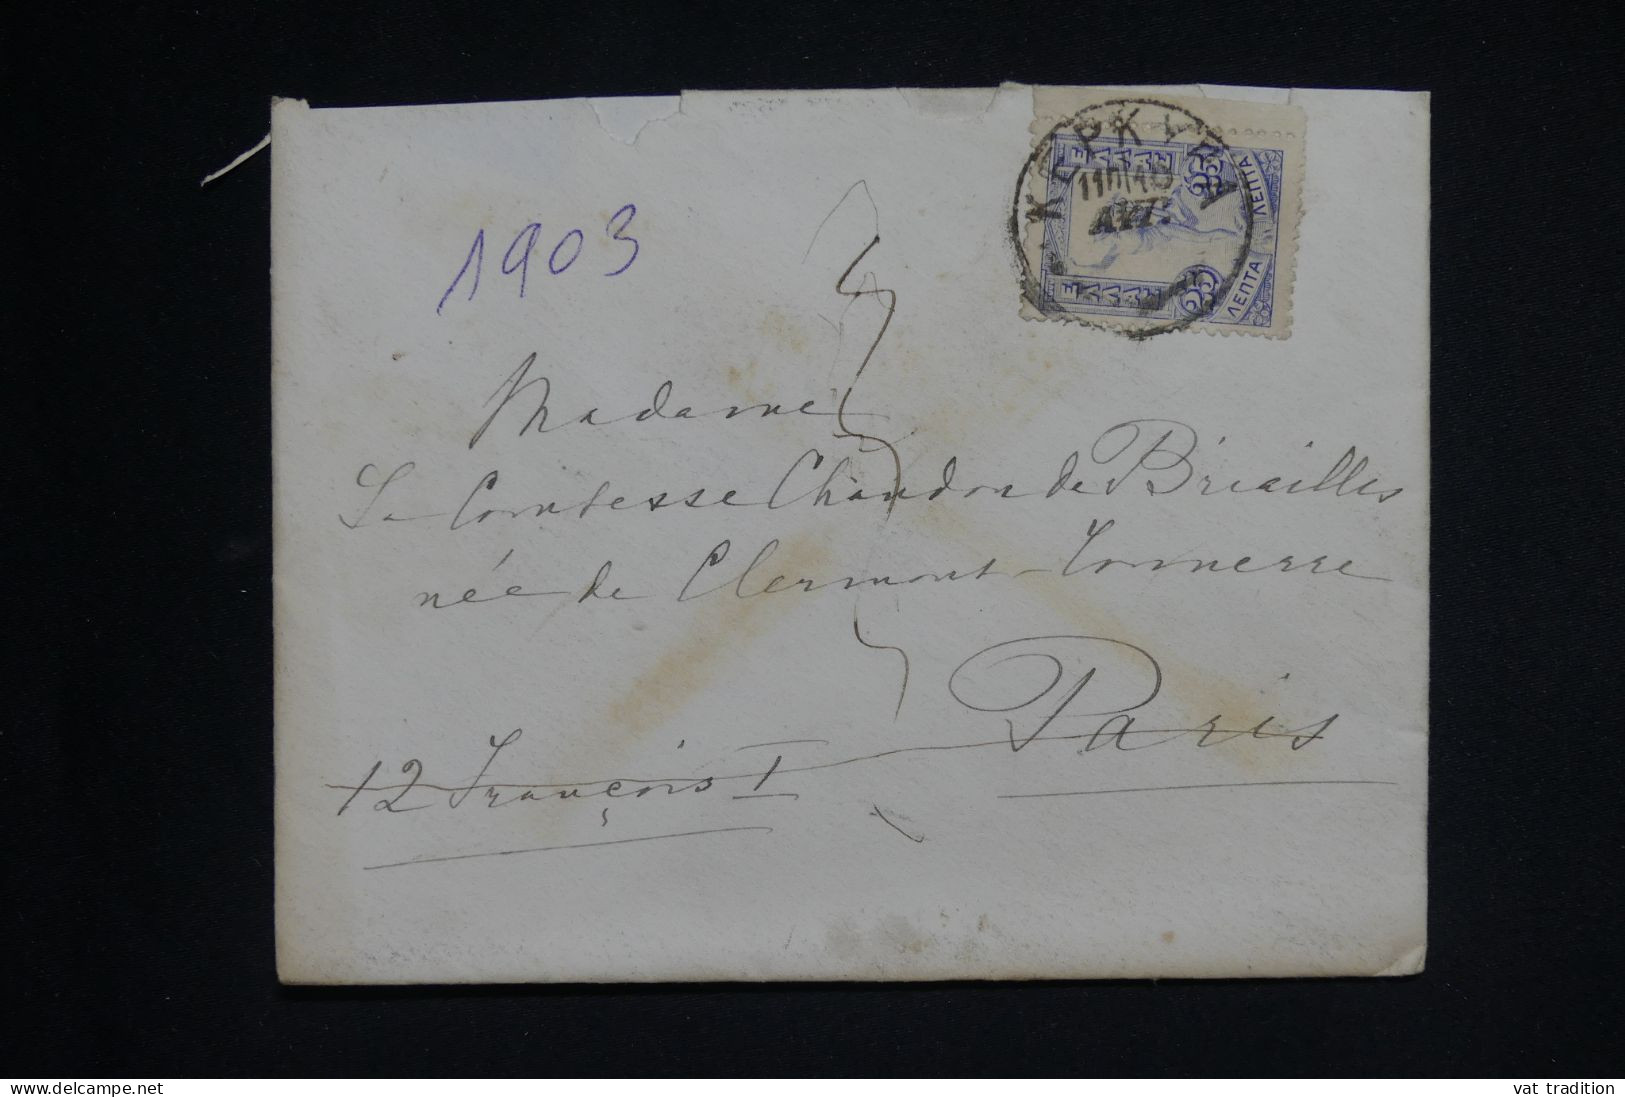 ΚΕΡΚΥΡΑ
ΑΥΓ.
ΕΛΛΑΣ
25 ΛΕΠΤΑ
ΕΛΛΑΣ
25 ΛΕΠΤΑ
1903
Madame
La Comtesse Chandon de Briailles
née de Clermont-Tonnerre
Paris
12 François I
delcampe.net
vat tradition